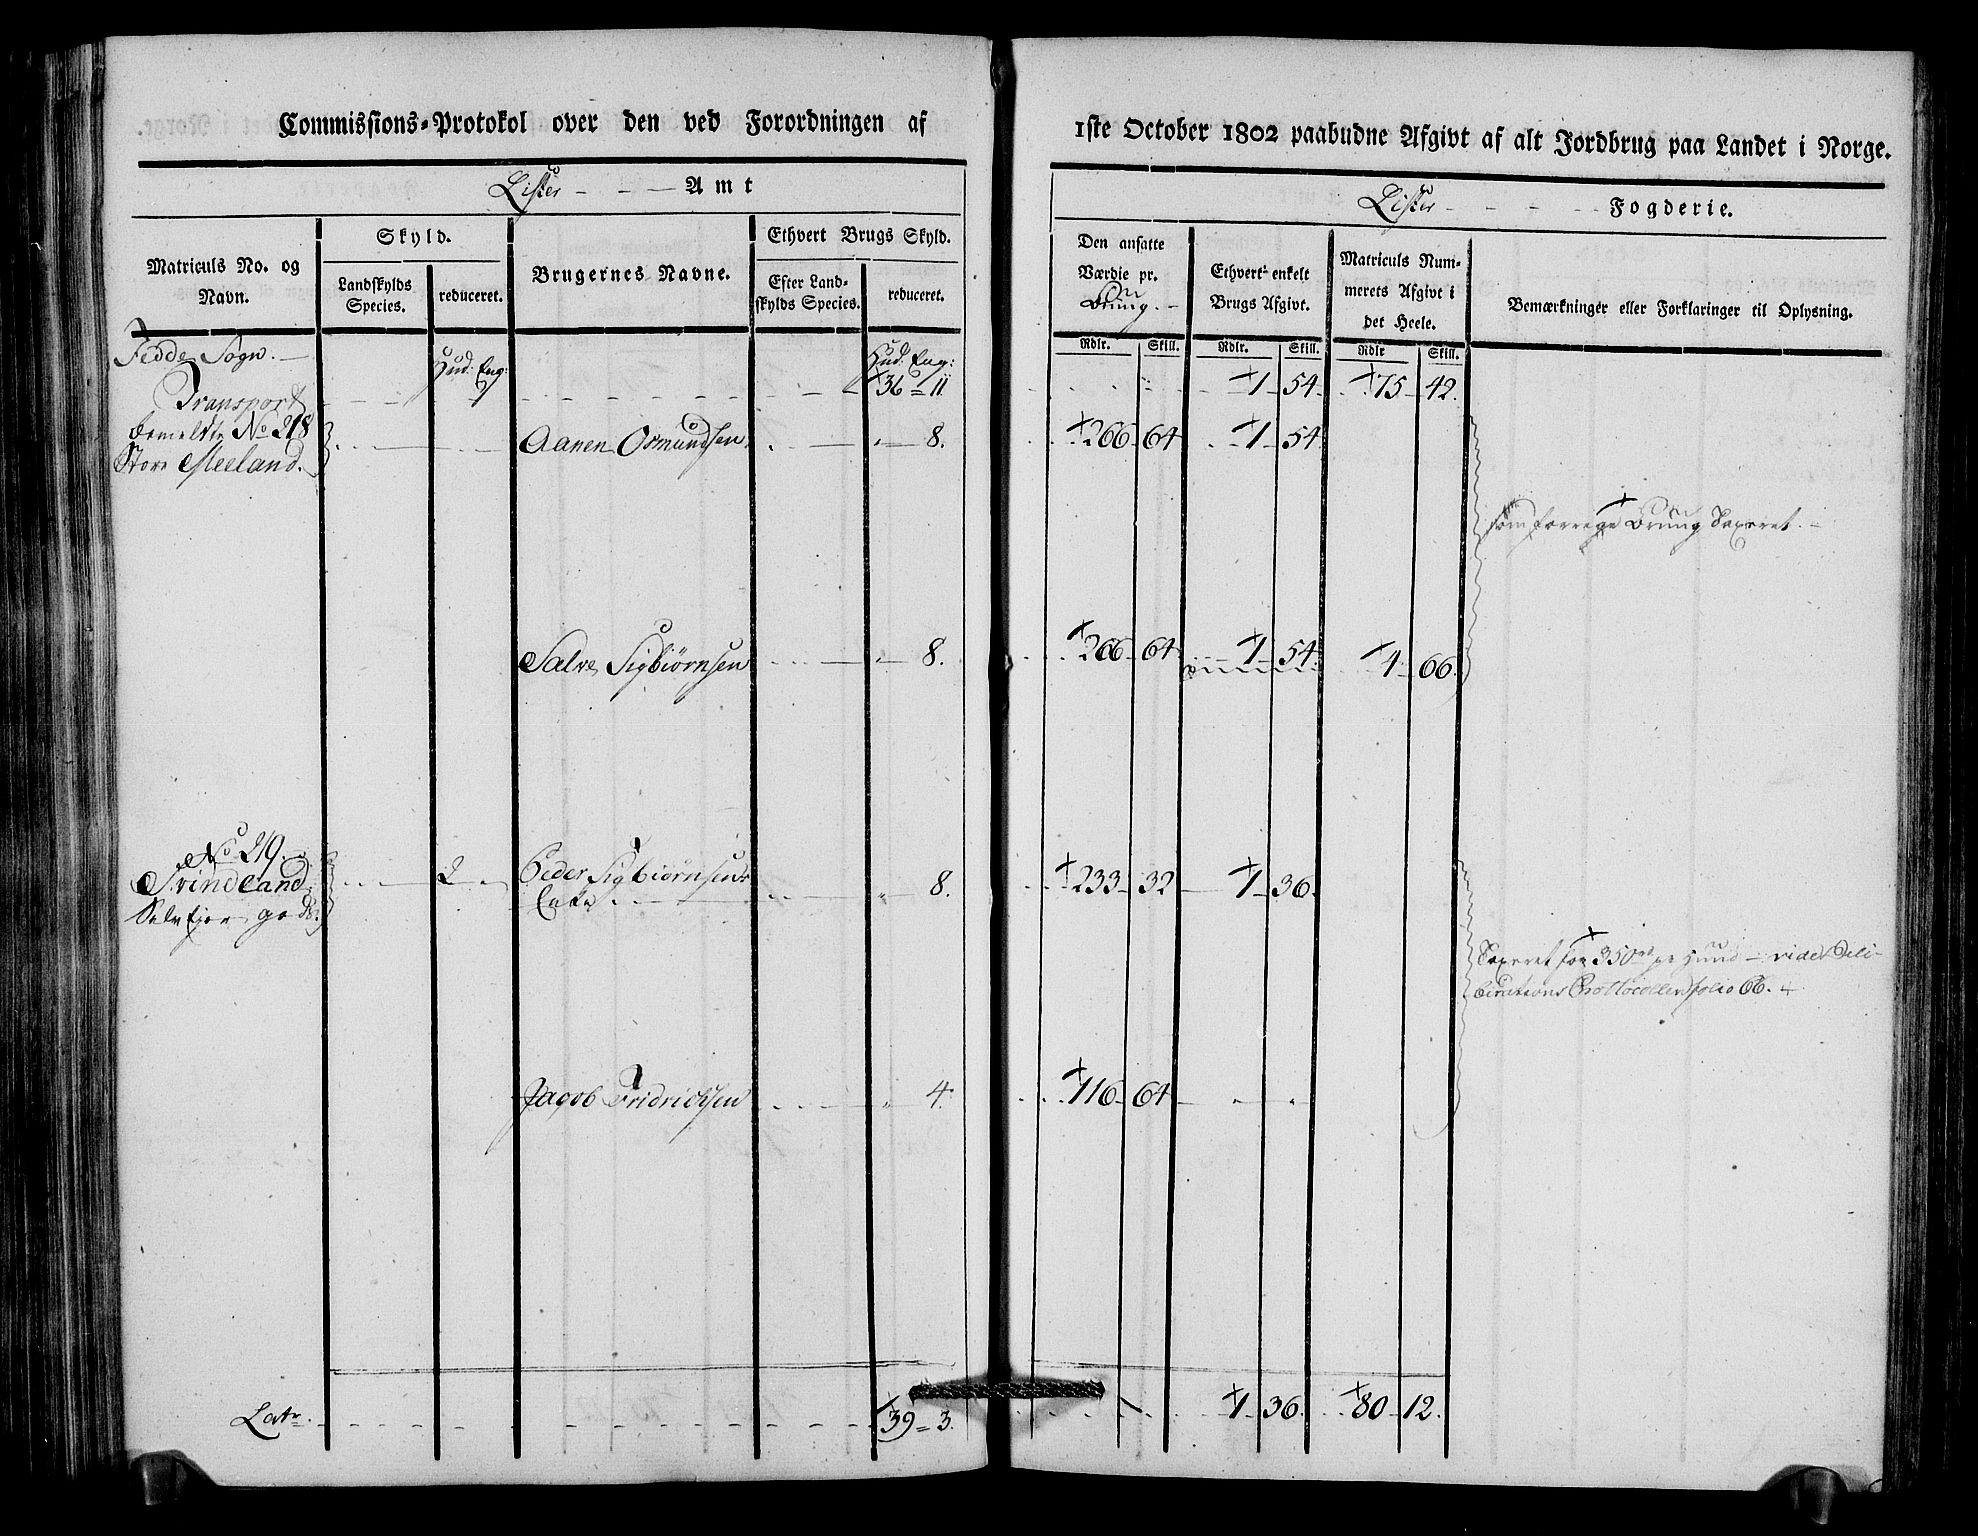 Commissions-Protokol over den ved Forordningen af
Lister - - — Amt
Matriculs No. og Navn.
Skyld.
Landskylds Species.
reduceret.
Brugernes Navne.
Ethvert Brugs Skyld.
Efter Landskylds Species.
reduceret.
Fedde Sogn. —
Hud: Eng:
Hud: Eng:
Transport - - - - - 36 = 11
bemeldte No 218
Store Meeland.
Aanen Osmundsen - — " — 8.
Salve Sigbiørnsen - — " — 8.
No 219.
Svindland
Selveier gods.
2
Peder Sigbiørnsens
Enke . - — - — " 8.
Jacob Fridrichsen - — " 4.
Latr. - - - - - 39 = 3.
1ste October 1802 paabudne Afgivt af alt Jordbrug paa Landet i Norge.
Lister - - - Fogderie.
Den ansatte Værdie pr. Brug. -
Ethvert enkelt Brugs Afgivt.
Matriculs Nummerets Afgivt i det Heele.
Bemærkninger eller Forklaringer til Oplysning.
Rdlr. Skill. Rdlr. Skill. Rdlr Skill.
1 54 75 42.
266 64 1 54
som forrige Brug Taxeret. —
266 64 1 54 4 66
233 32 — 1 36.
Taxeret for 350rd pr Huud — vide Deli-
berations Protocollen folio 66. +
116 64 — " — "
1 36. 80 12.